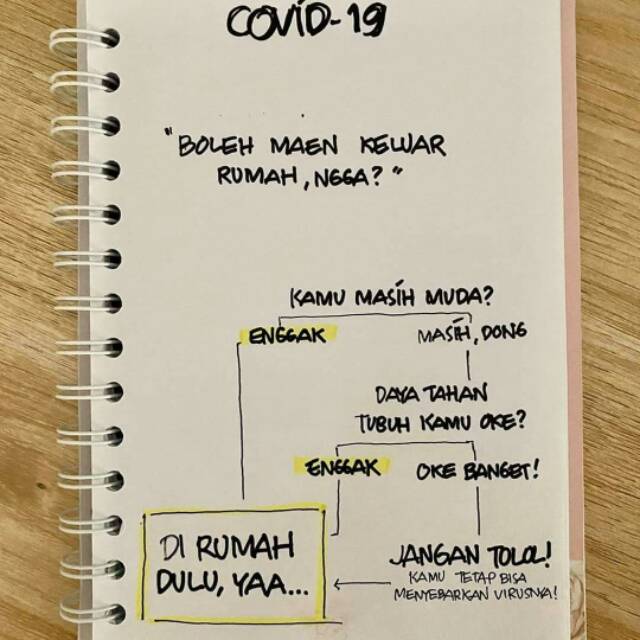 COVID-19
"BOLEH MAEN KELUAR
RUMAH, NGGA?"
KAMU MASIH MUDA?
ENGGAK
MASIH, DONG
DAYA TAHAN
TUBUH KAMU OKE?
ENGGAK
OKE BANGET!
DI RUMAH
DULU, YAA...
JANGAN TOLOL!
KAMU TETAP BISA
MENYEBARKAN VIRUSNYA!